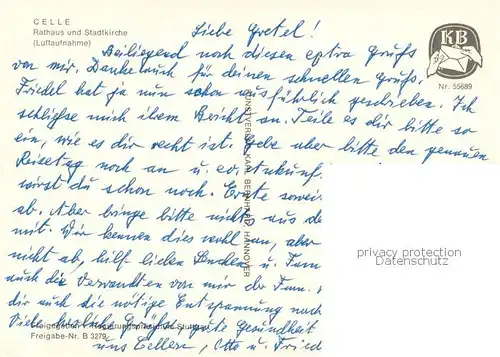 CELLE
Rathaus und Stadtkirche
(Luftaufnahme)
KB
Nr. 55689
Liebe Gretel!
Beiliegend noch diesen extra Gruß
von mir. Danke auch für deinen schnellen Gruß.
Friedel hat ja nun schon ausführlich geschrieben. Ich
schließe mich ihrem Bericht an. Teile es dir bitte so
ein, wie es dir recht ist. Gebe aber bitte den genauen
Reisetag noch an u. evt. Ankunf
wirst du schon noch. Ernte soweit
ab. Aber bringe bitte nichts aus de
mit. Wir kennen dies wohl an, aber
nicht ab, hilf lieben u.
auch die Verwandten von mir
dir auch die nötige Entspannung nach
Viele herzliche Grüße gute Gesundheit
aus Celle, Otto u. Fried
KUNSTVERLAG KARL BERNHARD, HANNOVER
privacy protection
Datenschutz
Freigegeben Regierungspräsident Stuttgart
Freigabe-Nr. B 3279